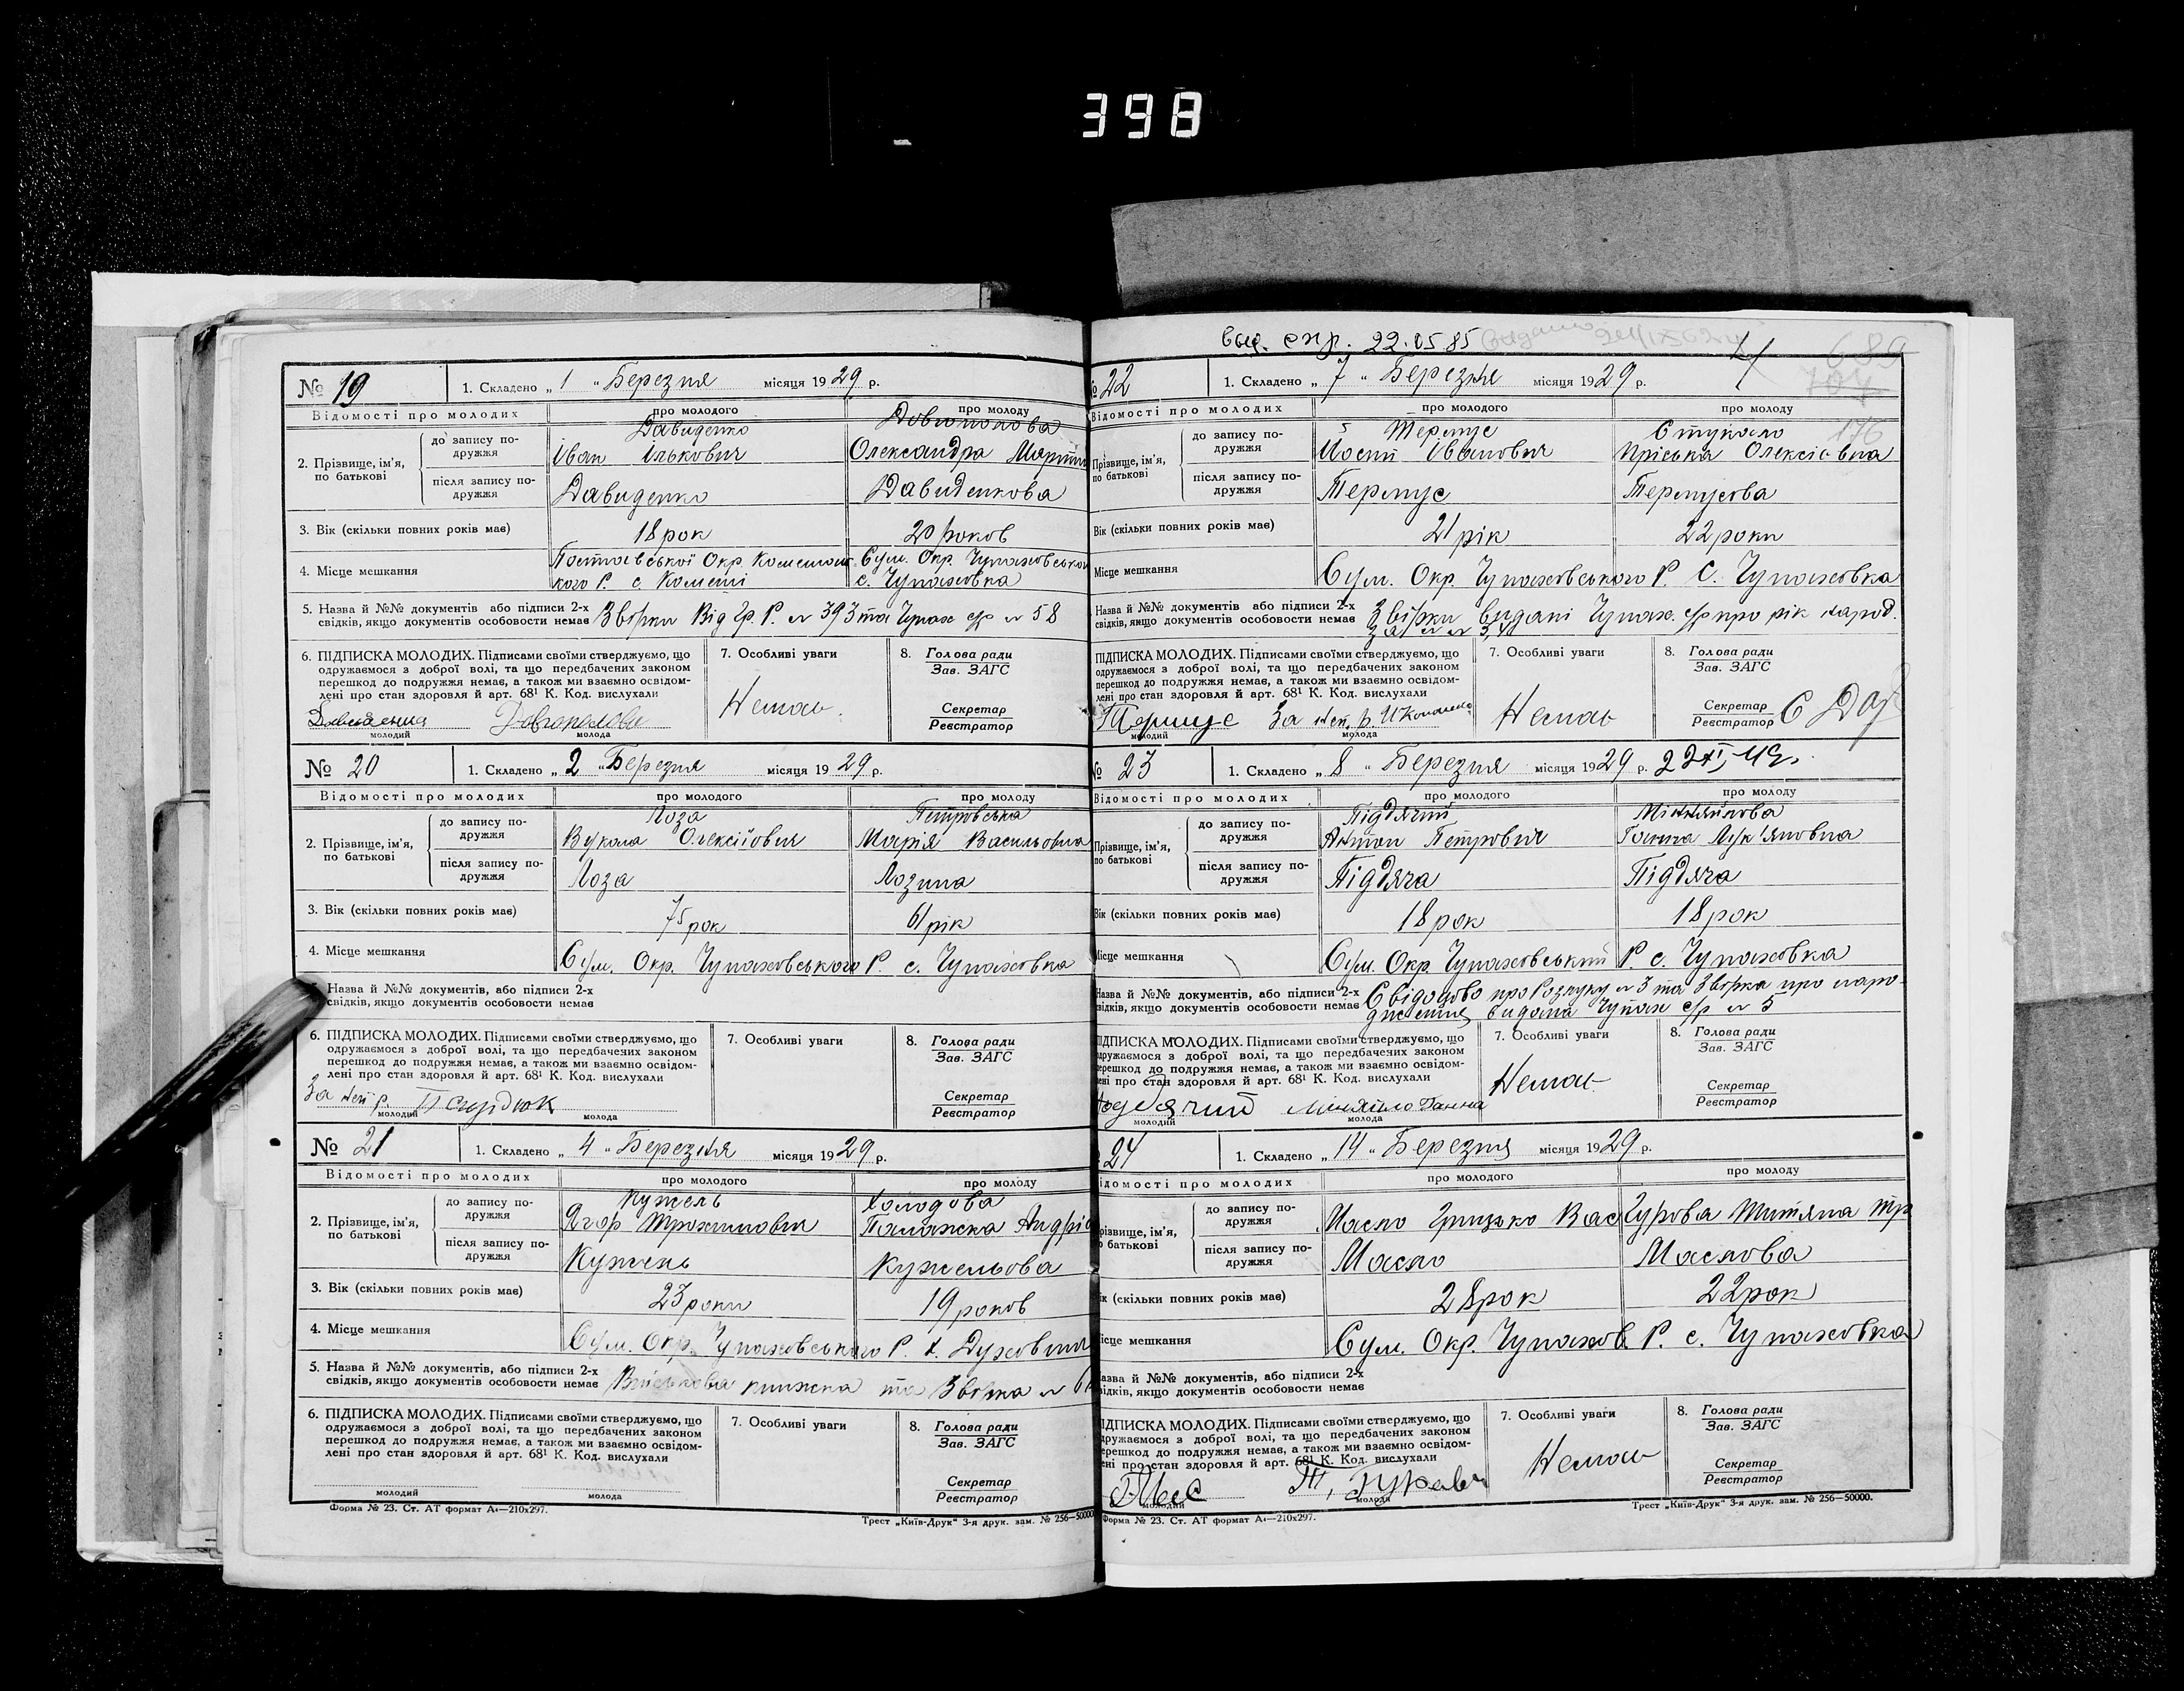 398
№ 19
1. Складено „ 1 " Березня місяця 1929 р.
Відомості про молодих
про молодого
про молоду
2. Прізвище, ім'я, по батькові
до запису подружжя
Давиденко
Іван Ількович
Олександра
після запису подружжя
Давиденко
Давиденкова
3. Вік (скільки повних років має)
18 рок
20 роков
4. Місце мешкання
кого Р. с.
Сум. Окр. Чупахівськ
с. Чупаховка
5. Назва й №№ документів або підписи 2-х
свідків, якщо документів особовости немає
Звірки Від Гр. Р. № 393 та Чупах с/р № 58
6. ПІДПИСКА МОЛОДИХ. Підписами своїми стверджуємо, що
одружаємося з доброї волі, та що передбачених законом
перешкод до подружжя немає, а також ми взаємно освідом-
лені про стан здоровля й арт. 68¹ К. Код. вислухали
молодий
молода
7. Особливі уваги
Немає
8. Голова ради
Зав. ЗАГС
Секретар
Реєстратор
№ 20
1. Складено „ 2 " Березня місяця 1929 р.
Відомості про молодих
про молодого
про молоду
2. Прізвище, ім'я, по батькові
до запису подружжя
Лоза
Вукола Олексійович
Петровська
Марія Васильовна
після запису подружжя
Лоза
Лозина
3. Вік (скільки повних років має)
75 рок
61 рік
4. Місце мешкання
Сум. Окр. Чупаховського Р. с. Чупаховка
Назва й №№ документів, або підписи 2-х
свідків, якщо документів особовости немає
6. ПІДПИСКА МОЛОДИХ. Підписами своїми стверджуємо, що
одружаємося з доброї волі, та що передбачених законом
перешкод до подружжя немає, а також ми взаємно освідом-
лені про стан здоровля й арт. 68¹ К. Код. вислухали
За неп. р.
молодий
молода
7. Особливі уваги
8. Голова ради
Зав. ЗАГС
Секретар
Реєстратор
№ 21
1. Складено „ 4 " Березня місяця 1929 р.
Відомості про молодих
про молодого
про молоду
2. Прізвище, ім'я, по батькові
до запису подружжя
Кужель
Ягор Трохимович
Холодова
Палажка Андріє
після запису подружжя
Кужель
Кужельова
3. Вік (скільки повних років має)
23 роки
19 роков
4. Місце мешкання
Сум. Окр. Чупаховського Р. х.
5. Назва й №№ документів, або підписи 2-х
свідків, якщо документів особовости немає
Військова книжка та Звірка №
6. ПІДПИСКА МОЛОДИХ. Підписами своїми стверджуємо, що
одружаємося з доброї волі, та що передбачених законом
перешкод до подружжя немає, а також ми взаємно освідом-
лені про стан здоровля й арт. 68¹ К. Код. вислухали
молодий
молода
7. Особливі уваги
8. Голова ради
Зав. ЗАГС
Секретар
Реєстратор
Форма № 23. Ст. АТ формат А4—210x297.
Трест „Київ-Друк" 3-я друк. зам. № 256—50000
22.05.85
689
176
№ 22
1. Складено „ 7 " Березня місяця 1929 р.
Відомості про молодих
про молодого
про молоду
Прізвище, ім'я, по батькові
до запису подружжя
Терпус
Йосип Іванович
Стукало
Пріська Олексієвна
після запису подружжя
Терпус
Терпусова
Вік (скільки повних років має)
21 рік
22 роки
Місце мешкання
Сум. Окр. Чупаховського Р. С. Чупаховка
Назва й №№ документів або підписи 2-х
свідків, якщо документів особовости немає
Звірки видані Чупах. с/р про рік народ.
ПІДПИСКА МОЛОДИХ. Підписами своїми стверджуємо, що
одружаємося з доброї волі, та що передбачених законом
перешкод до подружжя немає, а також ми взаємно освідом-
лені про стан здоровля й арт. 68¹ К. Код. вислухали
За неп. р.
молодий
молода
7. Особливі уваги
Немає
8. Голова ради
Зав. ЗАГС
Секретар
Реєстратор
№ 23
1. Складено „ 8 " Березня місяця 1929 р.
Відомості про молодих
про молодого
про молоду
Прізвище, ім'я, по батькові
до запису подружжя
Підлячий
Антон Петрович
Ганна Лук'яновна
після запису подружжя
Вік (скільки повних років має)
18 рок
18 рок
Місце мешкання
Сум. Окр Чупаховський Р. с. Чупаховка
Назва й №№ документів, або підписи 2-х
свідків, якщо документів особовости немає
про Розлуку № 3 та Звірка про наро-
дження видана Чупах с/р № 5
ПІДПИСКА МОЛОДИХ. Підписами своїми стверджуємо, що
одружаємося з доброї волі, та що передбачених законом
перешкод до подружжя немає, а також ми взаємно освідом-
лені про стан здоровля й арт. 68¹ К. Код. вислухали
молодий
молода
7. Особливі уваги
Немає
8. Голова ради
Зав. ЗАГС
Секретар
Реєстратор
24
1. Складено „ 14 " Березня місяця 1929 р.
Відомості про молодих
про молодого
про молоду
Прізвище, ім'я, по батькові
до запису подружжя
Масло Грицько Вас
Гурова Титяна Тр
після запису подружжя
Масло
Маслова
Вік (скільки повних років має)
28 рок
22 рок
Місце мешкання
Сум. Окр. Чупахов. Р. с. Чупаховка
Назва й №№ документів, або підписи 2-х
свідків, якщо документів особовости немає
ПІДПИСКА МОЛОДИХ. Підписами своїми стверджуємо, що
одружаємося з доброї волі, та що передбачених законом
перешкод до подружжя немає, а також ми взаємно освідом-
лені про стан здоровля й арт. 68¹ К. Код. вислухали
молодий
молода
7. Особливі уваги
Немає
8. Голова ради
Зав. ЗАГС
Секретар
Реєстратор
Форма № 23. Ст. АТ формат А4—210x297.
Трест „Київ-Друк" 3-я друк. зам. № 256—50000.